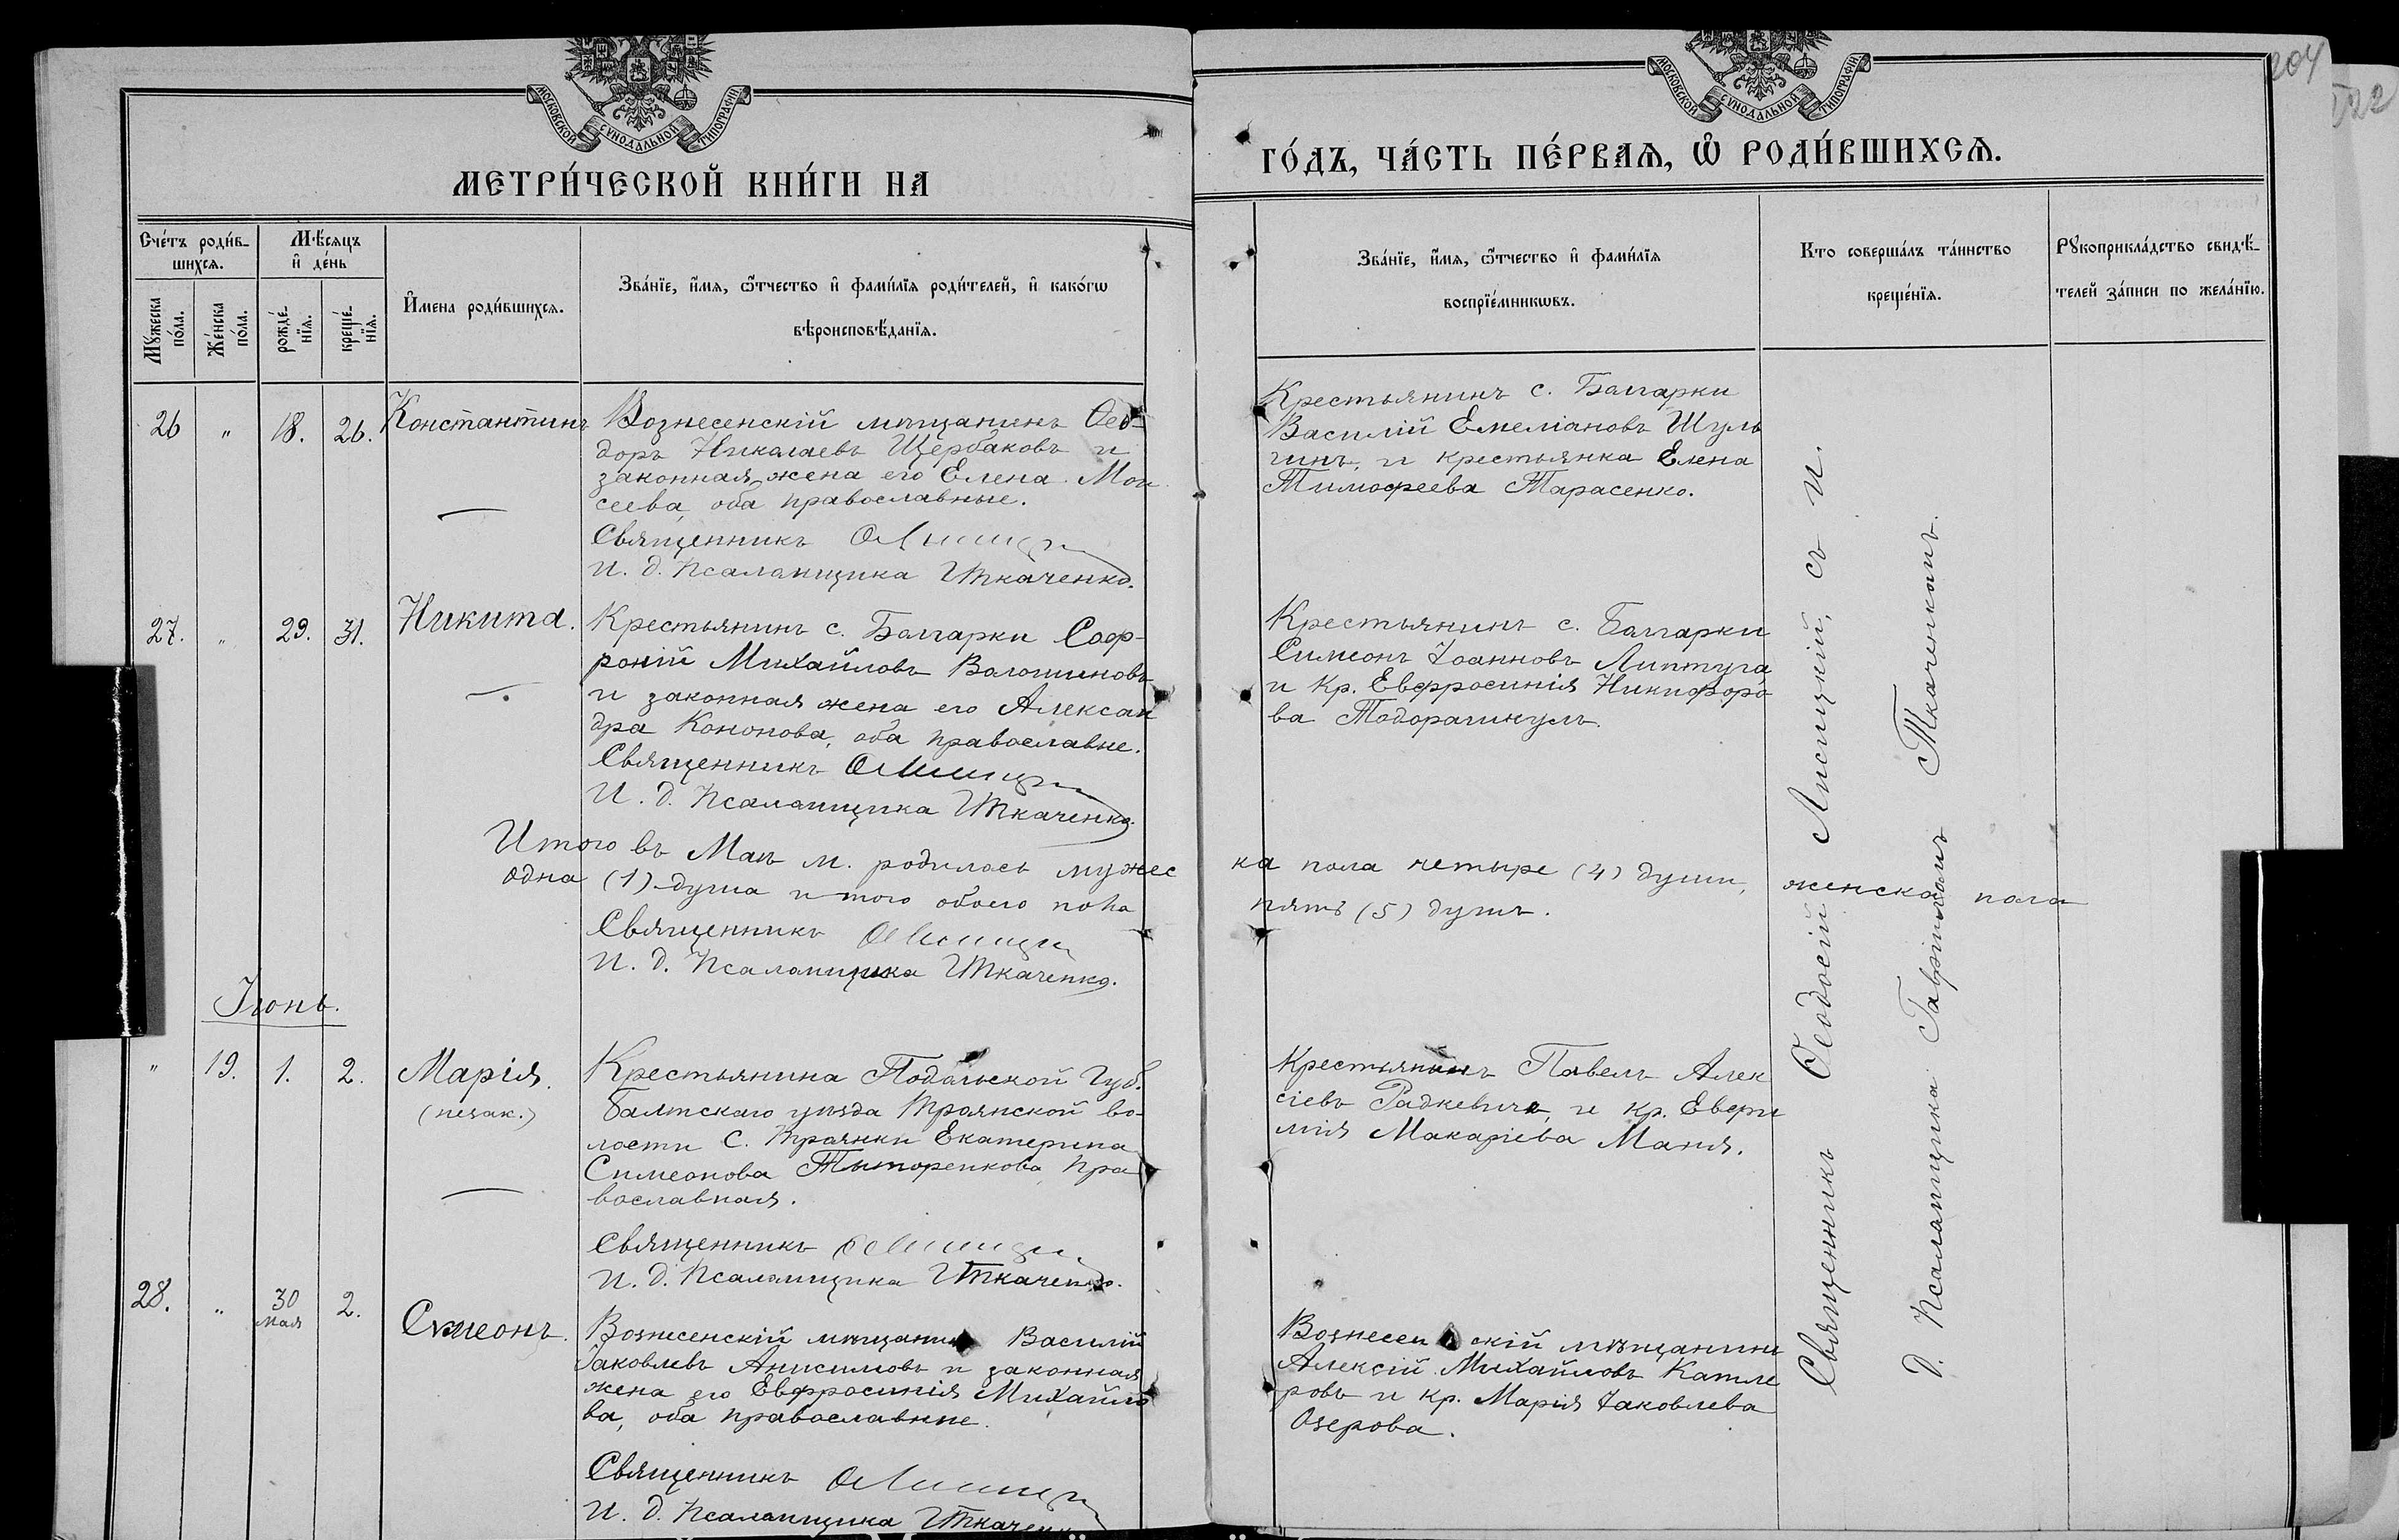 204
522
МОСКОВСКОЙ СѴНОДАЛЬНОЙ ТИПОГРАФІИ
МОСКОВСКОЙ СѴНОДАЛЬНОЙ ТИПОГРАФІИ
МЕТРИ́ЧЕСКОЙ КНИ́ГИ НА
ГО́ДЪ, ЧА́СТЬ ПЕ́РВАѦ, Ѽ РОДИ́ВШИХСѦ.
Сче́тъ роди́в-
шихсѧ.
Мѣ́сѧцъ
и҆ де́нь
Мꙋ́жеска
по́ла.
Же́нска
по́ла.
рожде́-
нїѧ.
креще́-
нїѧ.
И҆мена роди́вшихсѧ.
Зва́нїе, и҆́мѧ, ѻ҆́тчество и҆ фами́лїѧ роди́телей, и҆ како́гѡ
вѣроисповѣ́данїѧ.
Зва́нїе, и҆́мѧ, ѻ҆́тчество и҆ фами́лїѧ
воспрїе́мникѡвъ.
Кто соверша́лъ та́инство
креще́нїѧ.
Рꙋкоприкла́дство свидѣ́-
телей за́писи по жела́нїю.
26 " 18. 26. Константинъ
Вознесенскій мѣщанинъ Ѳео-
доръ Николаевъ Щербаковъ и
законная жена его Елена Мои
сеева, оба православные.
Священникъ
И. д. Псаломщика Г Ткаченко.
Крестьянинъ с. Болгарки
Василій Емеліановъ Шуль
гинъ, и крестьянка Елена
Тимофеева Тарасенко.
27. " 29. 31. Никита.
Крестьянинъ с. Болгарки Соф-
роній Михайловъ Волошиновъ
и законная жена его Алексан
дра Кононова, оба православне.
Священникъ
И. д. Псаломщика Г Ткаченко.
Крестьянинъ с. Болгарки
Симеонъ Іоанновъ Липтуга
и Кр. Евфросинія Никифоро
ва
Итого въ Маѣ м. родилось мужес
ка пола четыре (4) души, женска пола
одна (1) душа итого обоего пола
пять (5) душъ.
Священникъ
И. д. Псаломщика Г Ткаченко.
Іюнь.
" 19. 1. 2. Марія.
(незак.)
Крестьянина Подольской Губ.
Балтскаго уѣзда Троянской во-
лости С. Троянки Екатерина
Симеонова Титоренкова, пра
вославная.
Священникъ
И. д. Псаломщика Г Ткаченко.
Крестьянинъ Павелъ Алек
сіевъ Радкевичъ, и кр. Евфи
мія Макаріева Маня.
28. " 30 мая 2. Симеонъ.
Вознесенскій мѣщанинъ Василій
Іаковлевъ Анисимовъ и законная
жена его Евфросинія Михайло
ва, оба православнне.
Священникъ
И. д. Псаломщика Г Ткаченко
Вознесенскій мѣщанинъ
Алексій Михайловъ Катле
ровъ и кр. Марія Іаковлева
Озерова.
Священникъ Ѳеодосій Лисицкій, съ И.
Д. Псаломщика Гавріиломъ Ткаченкомъ.